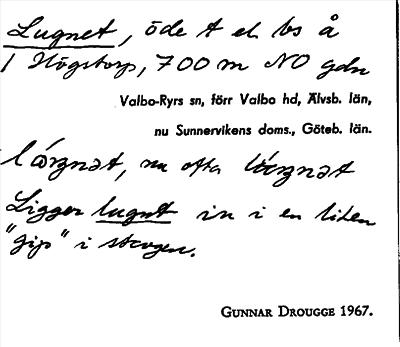 Lugnet, öde t el. bs å
1 Högstorp, 700 m NO gdn
Valbo-Ryrs sn, förr Valbo hd, Älvsb. län,
nu Sunnervikens doms., Göteb. län.
nu ofta
Ligger lugnt in i en liten
"gip" i skogen.
GUNNAR DROUGGE 1967.